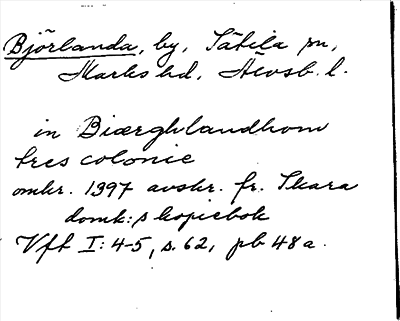 Björlanda, by, Sätila sn,
Marks hd, Älvsb. l.
in Biærghlandhom
tres colonie
omkr. 1397 avskr. fr. Skara
domk:s kopiebok
Vft I: 4-5, s. 62, pb 48a.